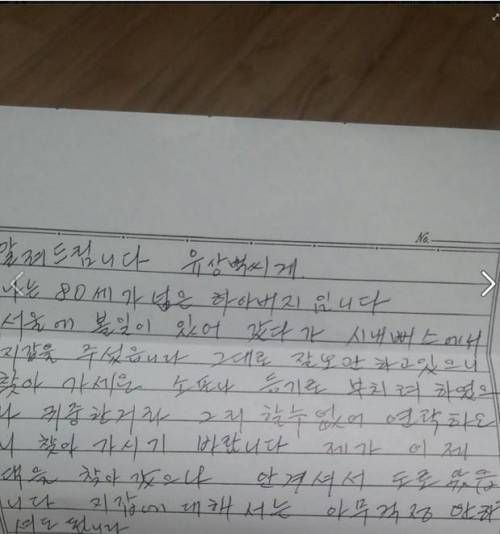 No.
알려드림니다 유상벽씨게.
나는 80세가 넘은 하아버지 임니다
서울에 볼일이 있어 갔다가 시내뻐스에서
지갑을 주섰읍니다 그대로 잘보관하고있으니
찾아 가세요 소포나 등기로 부치려 하였으
나 귀중한거라 그리 할수없어 연락하오
니 찾아 가시기 바람니다 제가 어제
댁을 찾아 갔으나 안계셔서 도로 왔읍
니다 지갑에 대해서는 아무걱정 안하
셔도 됩니다